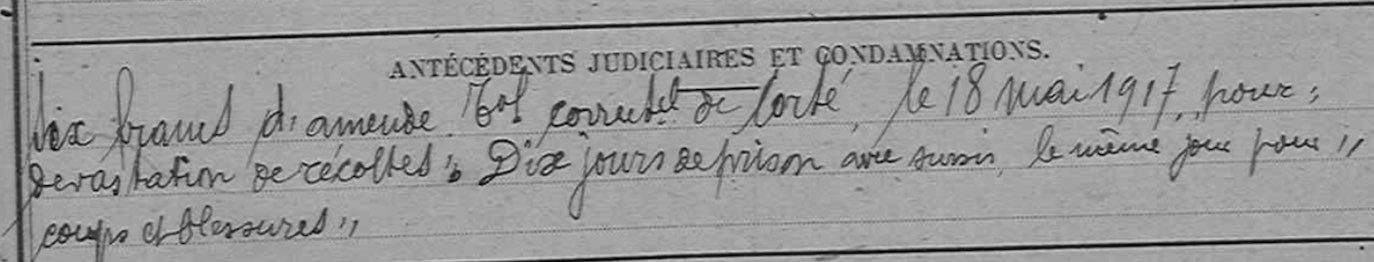 ANTÉCÉDENTS JUDICIAIRES ET CONDAMNATIONS.
Six francs d'amende Tal correctel de Corté, le 18 Mai 1917, pour :
devastation de récoltes ; Dix jours de prison avec sursis, le même jour pour "
coups et blessures "